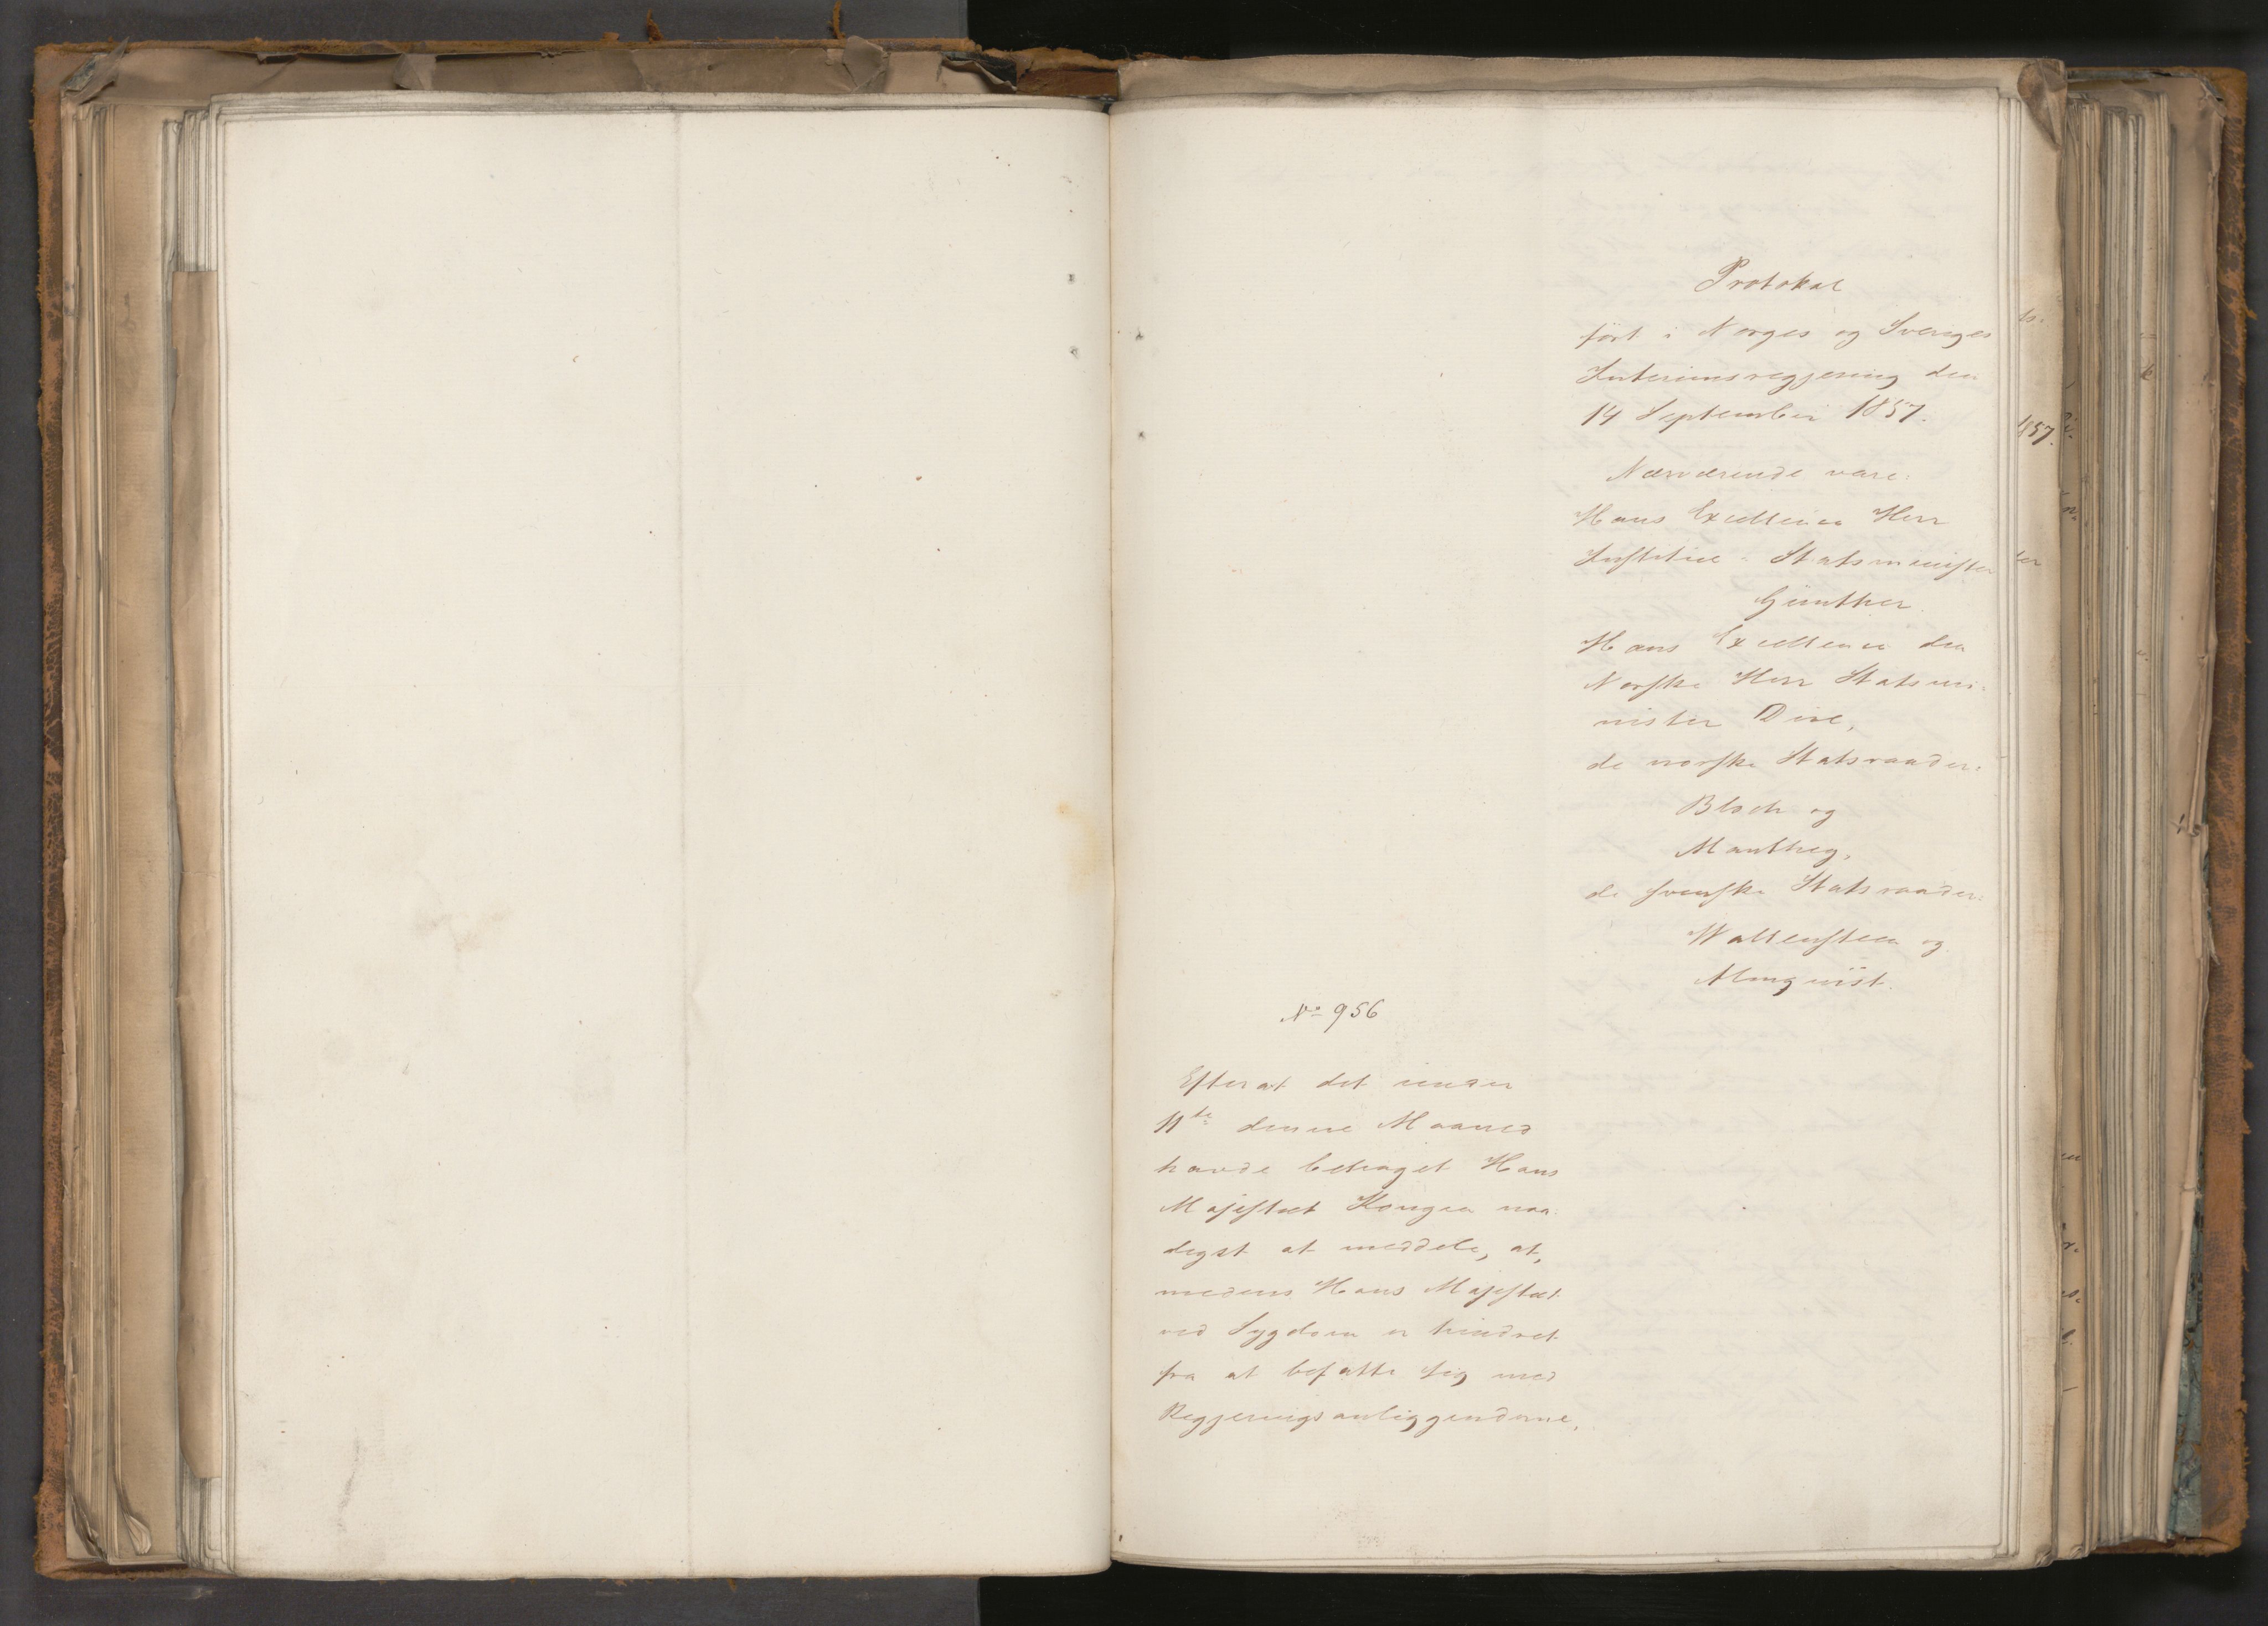 Protokol
ført i Norges og Sveriges
Interimsregjering den
14 September 1857.
Nærværende vare:
Hans Excellence Herr
Justitie-Statsminister
Günther
Hans Excellence den
Norske Herr Statsmi-
nister Due,
de norske Statsraader:
Bloch og
Manthey,
de svenske Statsraader:
Wallensteen og
Almqvist.
No 956
Efterat det under
11te denne Maaned
havde behaget Hans
Majestæt Kongen naa-
digst at meddele, at,
medens Hans Majestæt
ved Sygdom er hindret
fra at befatte sig med
Regjeringsanliggenderne,
1857.